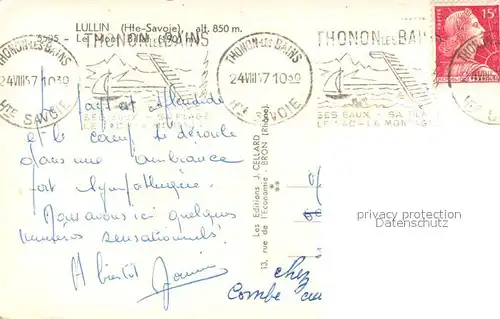 LULLIN (Hte-Savoie) alt. 850 m.
THONON-LES-BAINS
24 VIII 57 10 30
Hte SAVOIE
THONON LES BAINS
SES EAUX - SA PLAGE
LE LAC - LA MONTAGNE
THONON-LES-BAINS
24 VIII 57 10 30
Hte SAVOIE
THONON LES BAINS
SES EAUX - SA PLAGE
LE LAC - LA MONTAGNE
15F
est splendide
et le camp se déroule
dans une ambiance
fort sympathique.
Nous avons ici quelques
numéros sensationnels.
A bientôt
Les Editions J. CELLARD
13, rue de l'Economie - BRON (Rhône)
chez
Combe
privacy protection
Datenschutz